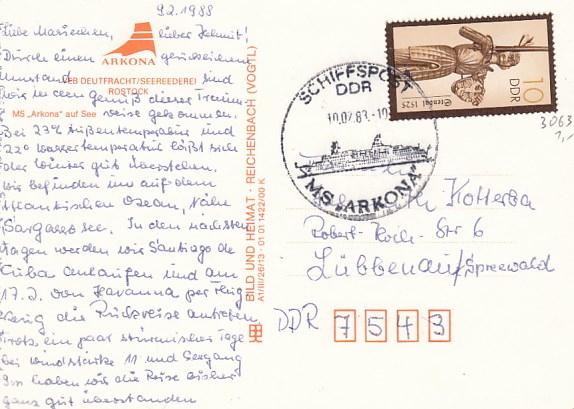 9.2.1988
Liebe Mariechen, lieber Helmut!
Durch einen
Umstand sind
wir in den Genuß dieser Traum
reise gekommen.
Bei 23° Außentemperatur und
22° Wassertemperatur läßt sich
der Winter gut überstehen.
Wir befinden uns auf dem
Atlantischen Ozean, Nähe
Sargassosee. In den nächsten
Tagen werden wir Santiago de
Cuba anlaufen und am
17.2. von Havanna per Flug
zeug die Rückreise antreten
Trotz ein paar stürmischer Tage
bei Windstärke 11 und Seegang
9 haben wir die Reise bisher
ganz gut überstanden
ARKONA
VEB DEUTFRACHT/SEEREEDEREI
ROSTOCK
MS „Arkona" auf See
BILD UND HEIMAT · REICHENBACH (VOGTL)
A1/III/26/13 · 01 01 1422/00 K
SCHIFFSPOST
DDR
MS „ARKONA"
10
DDR
Stendal 1525
3063
1,-
Kotterba
Robert-Koch-Str 6
Lübbenau/Spreewald
DDR 7543